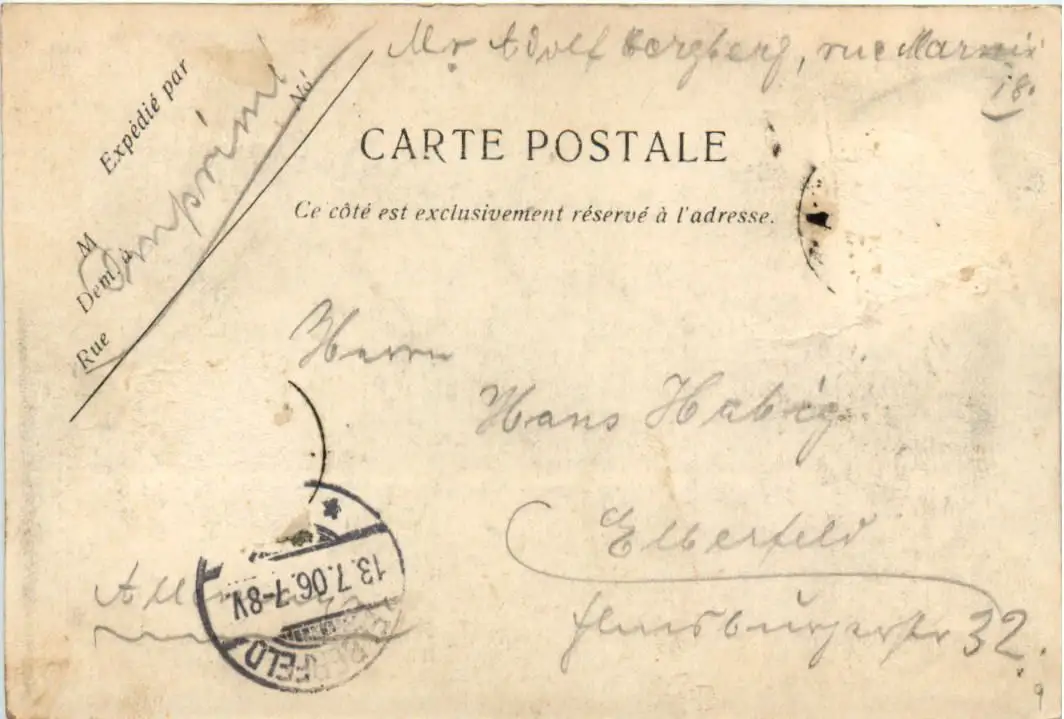 Mr Adolf Bergberg, rue
18.
Expédié par
Imprimé
No
M
Dem. à
Rue
CARTE POSTALE
Ce côté est exclusivement réservé à l'adresse.
Herrn
Hans Habig
Elberfeld
Flensburgerstr 32.
13.7.06.7-8V
ELBERFELD
9